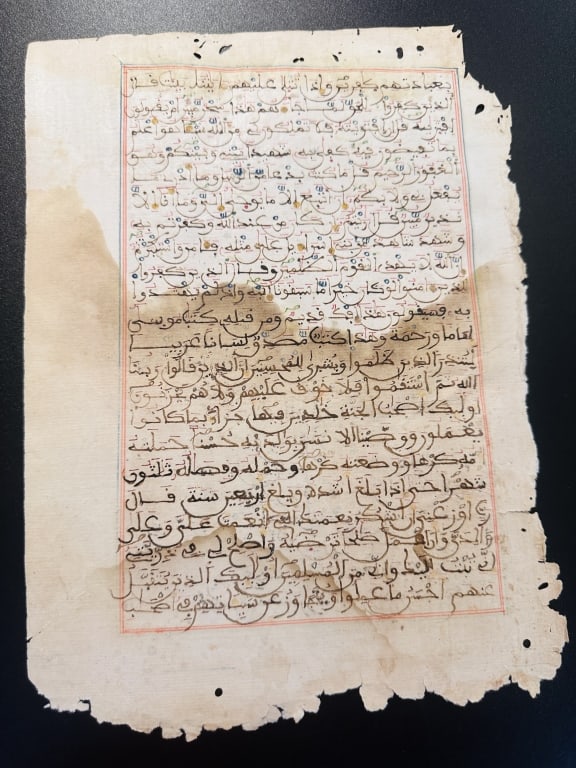 بعبادتهم كفرين وإذا تتلى عليهم ءايتنا بينت قال
الذين كفروا للحق لما جاءهم هذا سحر مبين ام يقولون
افتريه قل ان افتريته فلا تملكون لي من الله شيئا هو اعلم
بما تفيضون فيه كفى به شهيدا بيني وبينكم وهو
الغفور الرحيم قل ما كنت بدعا من الرسل وما ادري ما
يفعل بي ولا بكم ان اتبع الا ما يوحى الي وما انا الا
نذير مبين قل ارايتم ان كان من عند الله وكفرتم به
وشهد شاهد من بني اسراءيل على مثله فامن واستكبرتم
ان الله لا يهدي القوم الظلمين وقال الذين كفروا
للذين ءامنوا لو كان خيرا ما سبقونا اليه واذ لم يهتدوا
به فسيقولون هذا افك قديم ومن قبله كتب موسى
اماما ورحمة وهذا كتب مصدق لسانا عربيا
لتنذر الذين ظلموا وبشرى للمحسنين ان الذين قالوا ربنا
الله ثم استقموا فلا خوف عليهم ولا هم يحزنون
اوليك اصحب الجنة خلدين فيها جزاء بما كانوا
يعملون ووصينا الانسن بولديه حسنا حملته
امه كرها ووضعته كرها وحمله وفصله ثلثون
شهرا حتى اذا بلغ اشده وبلغ اربعين سنة قال
رب اوزعني ان اشكر نعمتك التي انعمت علي وعلى
ولدي وان اعمل صلحا ترضيه واصلح لي في ذريتي
اني تبت اليك واني من المسلمين اوليك الذين يتقبل
عنهم احسن ما عملوا ويتجاوز عن سياتهم في اصحب